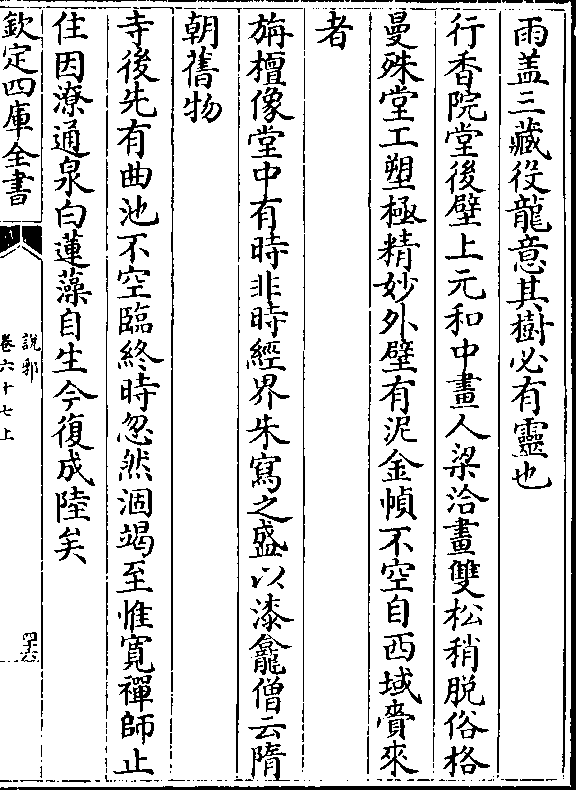 雨盖三藏役龍意其樹必有靈也
行香院堂後壁上元和中畫人梁洽畫雙松稍脱俗格
曼殊堂工塑極精妙外壁有泥金幀不空自西域賫來
者
旃檀像堂中有時非時經界朱寫之盛以漆龕僧云隋
朝舊物
寺後先有曲池不空臨終時忽然涸竭至惟寛禪師止
住因潦通泉白蓮藻自生今復成陸矣
欽定四庫全書
説郛
卷六十七上